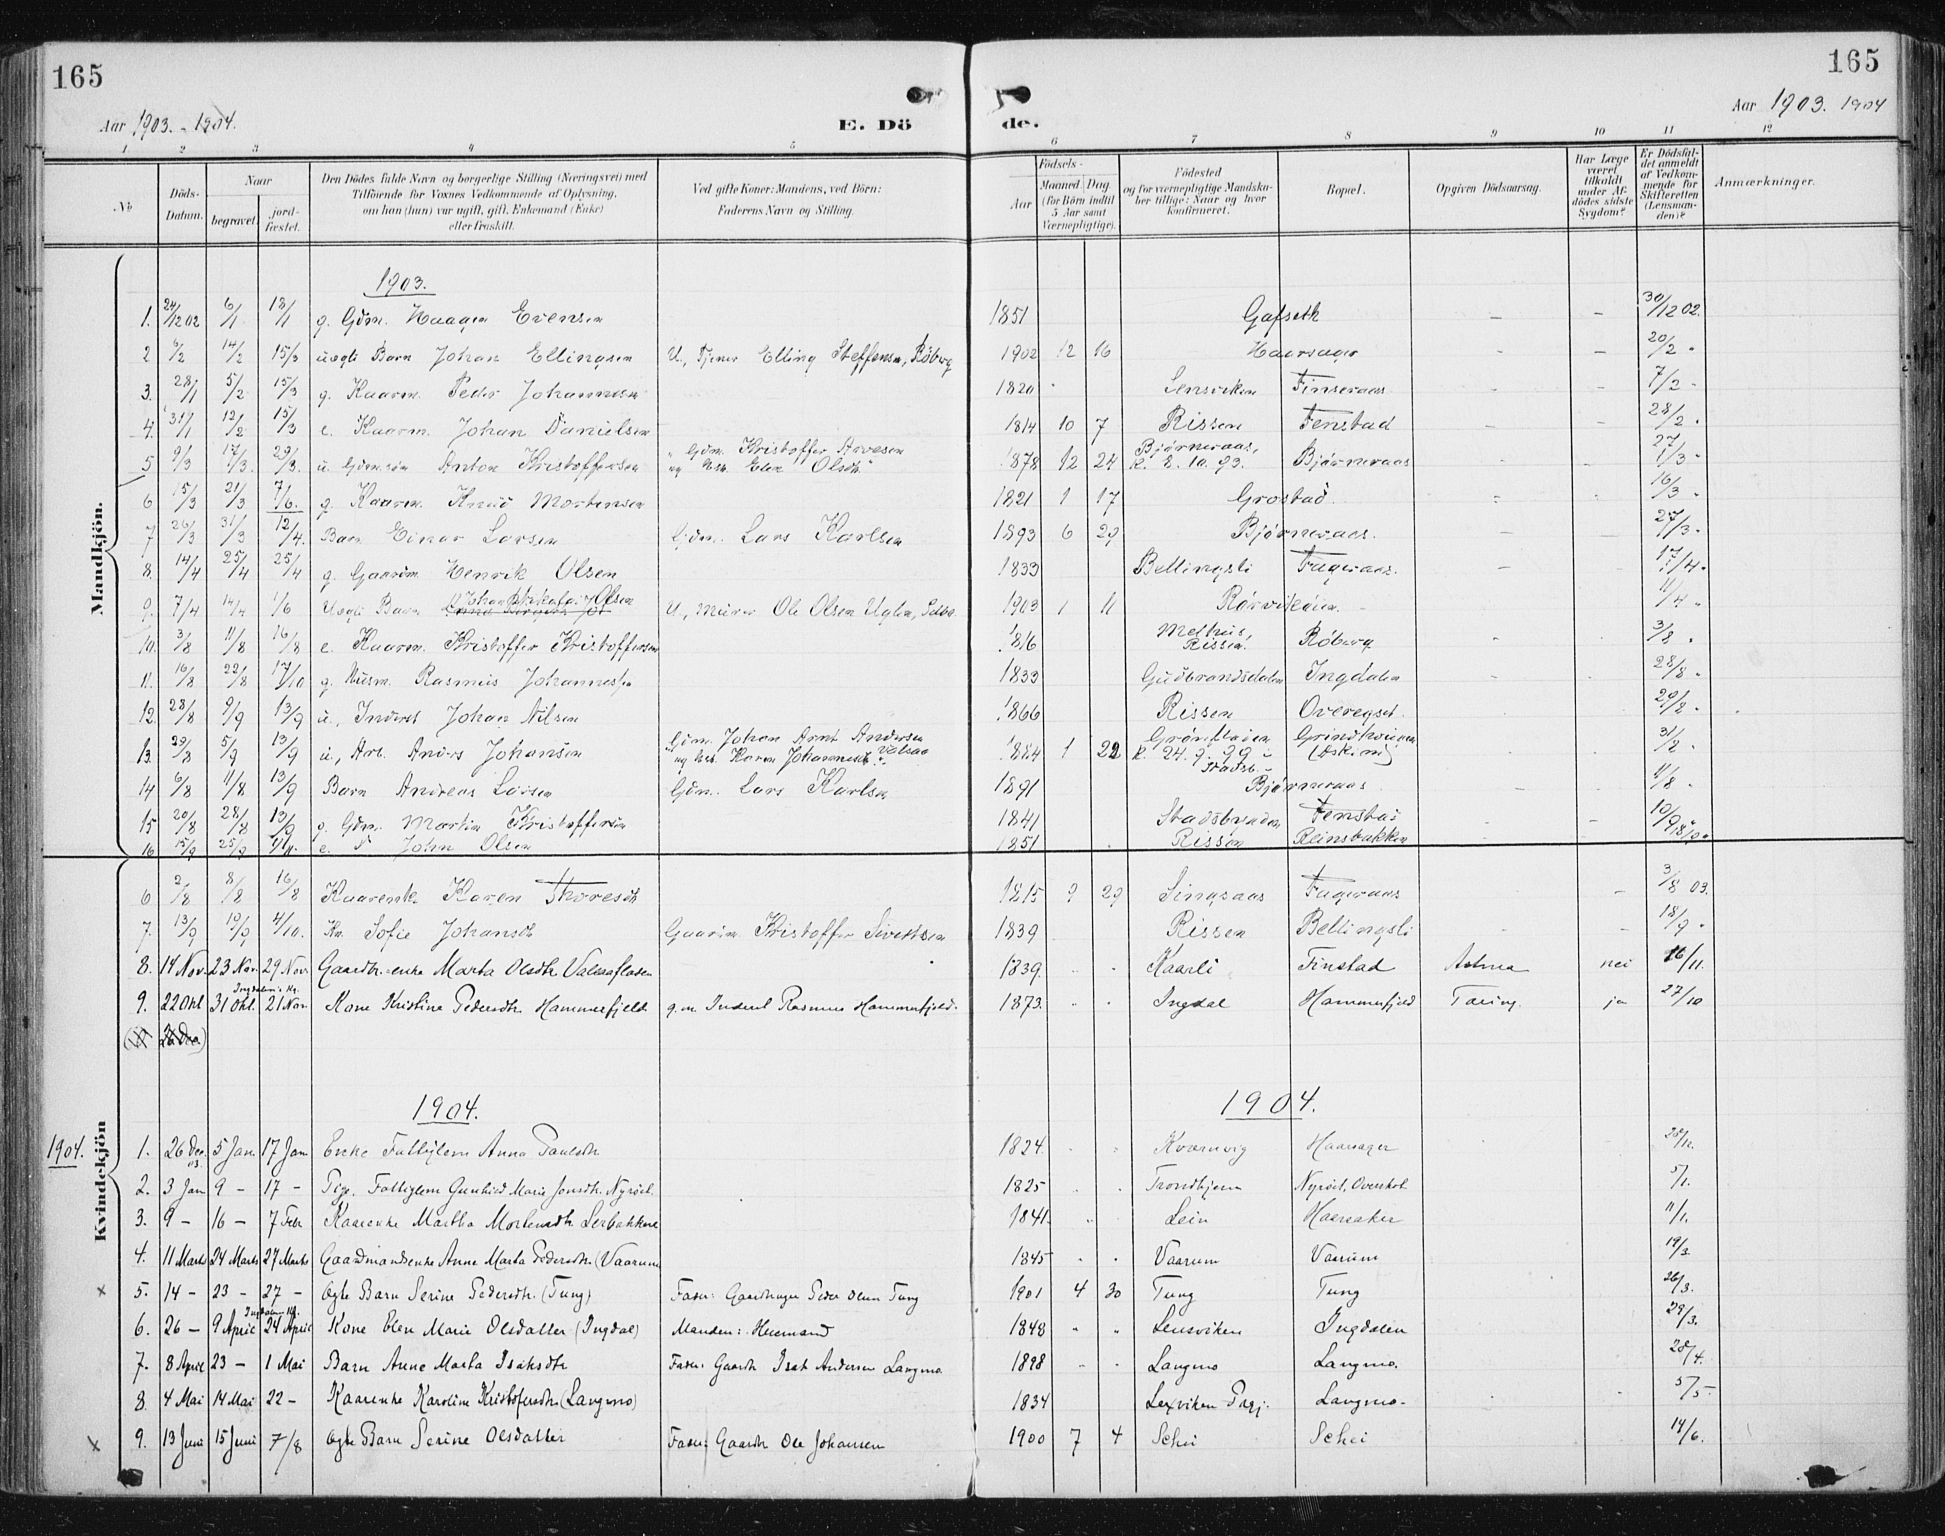 165
165
Aar 1903. - 1904.
E. Dö
de.
Aar 1903. 1904
1 2 3 4 5 6 7 8 9 10 11 12
No
Döds-Datum.
Naar
begravet.
jord-fæstet.
Den Dödes fulde Navn og borgerlige Stilling (Næringsvei) med
Tilföiende for Voxnes Vedkommende af Oplysning,
om han (hun) var ugift, gift, Enkemand (Enke)
eller fraskilt.
Ved gifte Koner: Mandens, ved Börn:
Faderens Navn og Stilling.
Födsels-
Aar
Maaned. Dag.
(for Börn indtil
5 Aar samt
Værnepligtige).
Födested
og for værnepligtige Mandska-
ber tillige: Naar og hvor
konfirmeret.
Bopæl.
Opgiven Dödsaarsag.
Har Læge
været
tilkaldt
under Af-
dödes sidste
Sygdom?
Er Dödsfal-
det anmeldt
af Vedkom-
mende for
Skifteretten
(Lensman-
den)?
Anmærkninger.
Mandkjön.
1903.
1. 24/12 02 6/1 18/1 g. Gdm. Haagen Evensen 1851 Gafseth – – 30/12 02.
2 6/2 14/2 15/3 uægte Barn Johan Ellingsen U, Tjener Elling Steffensen, Röberg 1902 12 16 Haarsager – – 20/2 "
3. 28/1 5/2 15/3 g. Kaarm. Peder Johannesen 1820 Lensviken Finseraas 7/2 "
4. 31/1 12/2 15/3 e. Kaarm. Johan Danielsen 1814 10 7 Rissen Fenstad 28/2 "
5 9/3 17/3. 29/3. u. Gdm.søn Anton Kristoffersen Gdm. Kristoffer Arvesen og Elen Olsdt. 1878 12 24 Bjørneraas, k. 8. 10. 93. Bjørneraas 27/3 "
6 15/3 21/3 7/6. g. Kaarm. Knud Mortensen 1821 1 17 Grostad 16/3 "
7 26/3 31/3 12/4. Barn Einar Larsen Gdm. Lars Karlsen 1893 6 29 Bjørneraas. – – 27/3 "
8. 14/4 25/4 25/4 g. Gaardm Henrik Olsen 1833 Bellingsli Fageraas. 17/4 "
9. 7/4 14/4 1/6 Uægte Barn Olsen U, Murer Ole Olsen Uglen, Selbu 1903 1 11 Rørvikøien. 11/4 "
10. 3/8 11/8 16/8 e. Kaarm. Kristoffer Kristoffersen 1816 Melhus, Rissen. Röberg 3/8 "
11. 16/8 22/8 17/10 g. Husm. Rasmus Johannessen 1833 Gudbrandsdalen Ingdalen 28/8 "
12. 28/8 9/9 13/9 u, Inderst Johan Nilsen 1866 Rissen Overegset. 29/2 "
13. 29/8 5/9 13/9 u, Arb. Anders Johansen Gdm. Johan Arnt Andersen og Karen Johannesdt. 1884 1 22 k. 24. 9. 99 Stadsb. 31/2 "
14 6/8 11/8 13/9 Barn Andreas Larsen Gdm. Lars Karlsen 1891 Bjørneraas 11/8 "
15 20/8 28/8 13/9 g. Gdm. Martin Kristoffersen 1841 Stadsbygden Fenstad 10/9
16 15/9 25/9 e. John Olsen 1851 Rissen Reinsbakken
Kvindekjön
6 2/8 8/8 16/8 Kaarenke Karen Thoresdt 1815 9 29 Singsaas Fageraas 3/8 03.
7 13/9 19/9 4/10. Kn. Sofie Johansdt Gaardm. Kristoffer Sivertsen 1839 Rissen Bellingsli 18/9 "
8. 14 Nov. 23 Nov. 29 Nov. Gaardm.enke Marta Olsdtr Valsaflaten 1839. Kaarli Finstad Astma nei 16/11.
9. 22 Okt 31 Okt. Ingdalen's Kg. 21 Nov. Kone Kristine Pedersdtr. Hammerfjeld g.m. Inderst Rasmus Hammerfjeld. 1873. Ingdal Hammerfjeld Tæring. ja 27/10
1904.
1904.
1904. 1. 26 Dec. 03. 5 Jan. 17 Jan Enke Fattiglem Anna Paulsdtr 1824. Kvarnvig Haarsager 28/12.
2. 3 Jan 9 – 17 – Pige. Fattiglem Gunhild Marie Jonsdtr. Nyröst. 1825 Trondhjem Nyröst, Overskot 5/1.
3. 9 – 16 – 7 Febr Kaarenke Martha Mortensdtr Lerbakkene 1841. Lein Haarsaker 11/1.
4. 11 Marts 24 Marts 27 Marts Gaardmandsenke Anne Marta Pedersdtr (Vaarum 1845 Vaarum Vaarum 19/3
x 5. 14 – 23 – 27 – Ægte Barn Serine Pedersdtr. (Tung) Fader: Gaardbruger Peder Olsen Tung 1901 4 30 Tung Tung 26/3.
6. 26 – 9 April Ingdalen Kg. 24 April Kone Elen Marie Olsdatter (Ingdal) Manden: Husmand 1848 Lensviken Ingdalen 29/3.
7. 8 April 23 – 1 Mai Barn Anne Marta Isaksdtr Fader: Gaardbr Isak Andersen Langmo 1898 Langmo Langmo. 28/4.
8. 4 Mai 14 Mai 22 – Kaarenke Karoline Kristofersdtr (Langmo) 1834 Lexviken Pgj. Langmo. 5/5
x 9. 13 Juni 15 Juni 7/8 Ægte Barn Serine Olsdatter Fader: Gaardbr Ole Johansen 1900 7 4 Schei Schei 14/6.